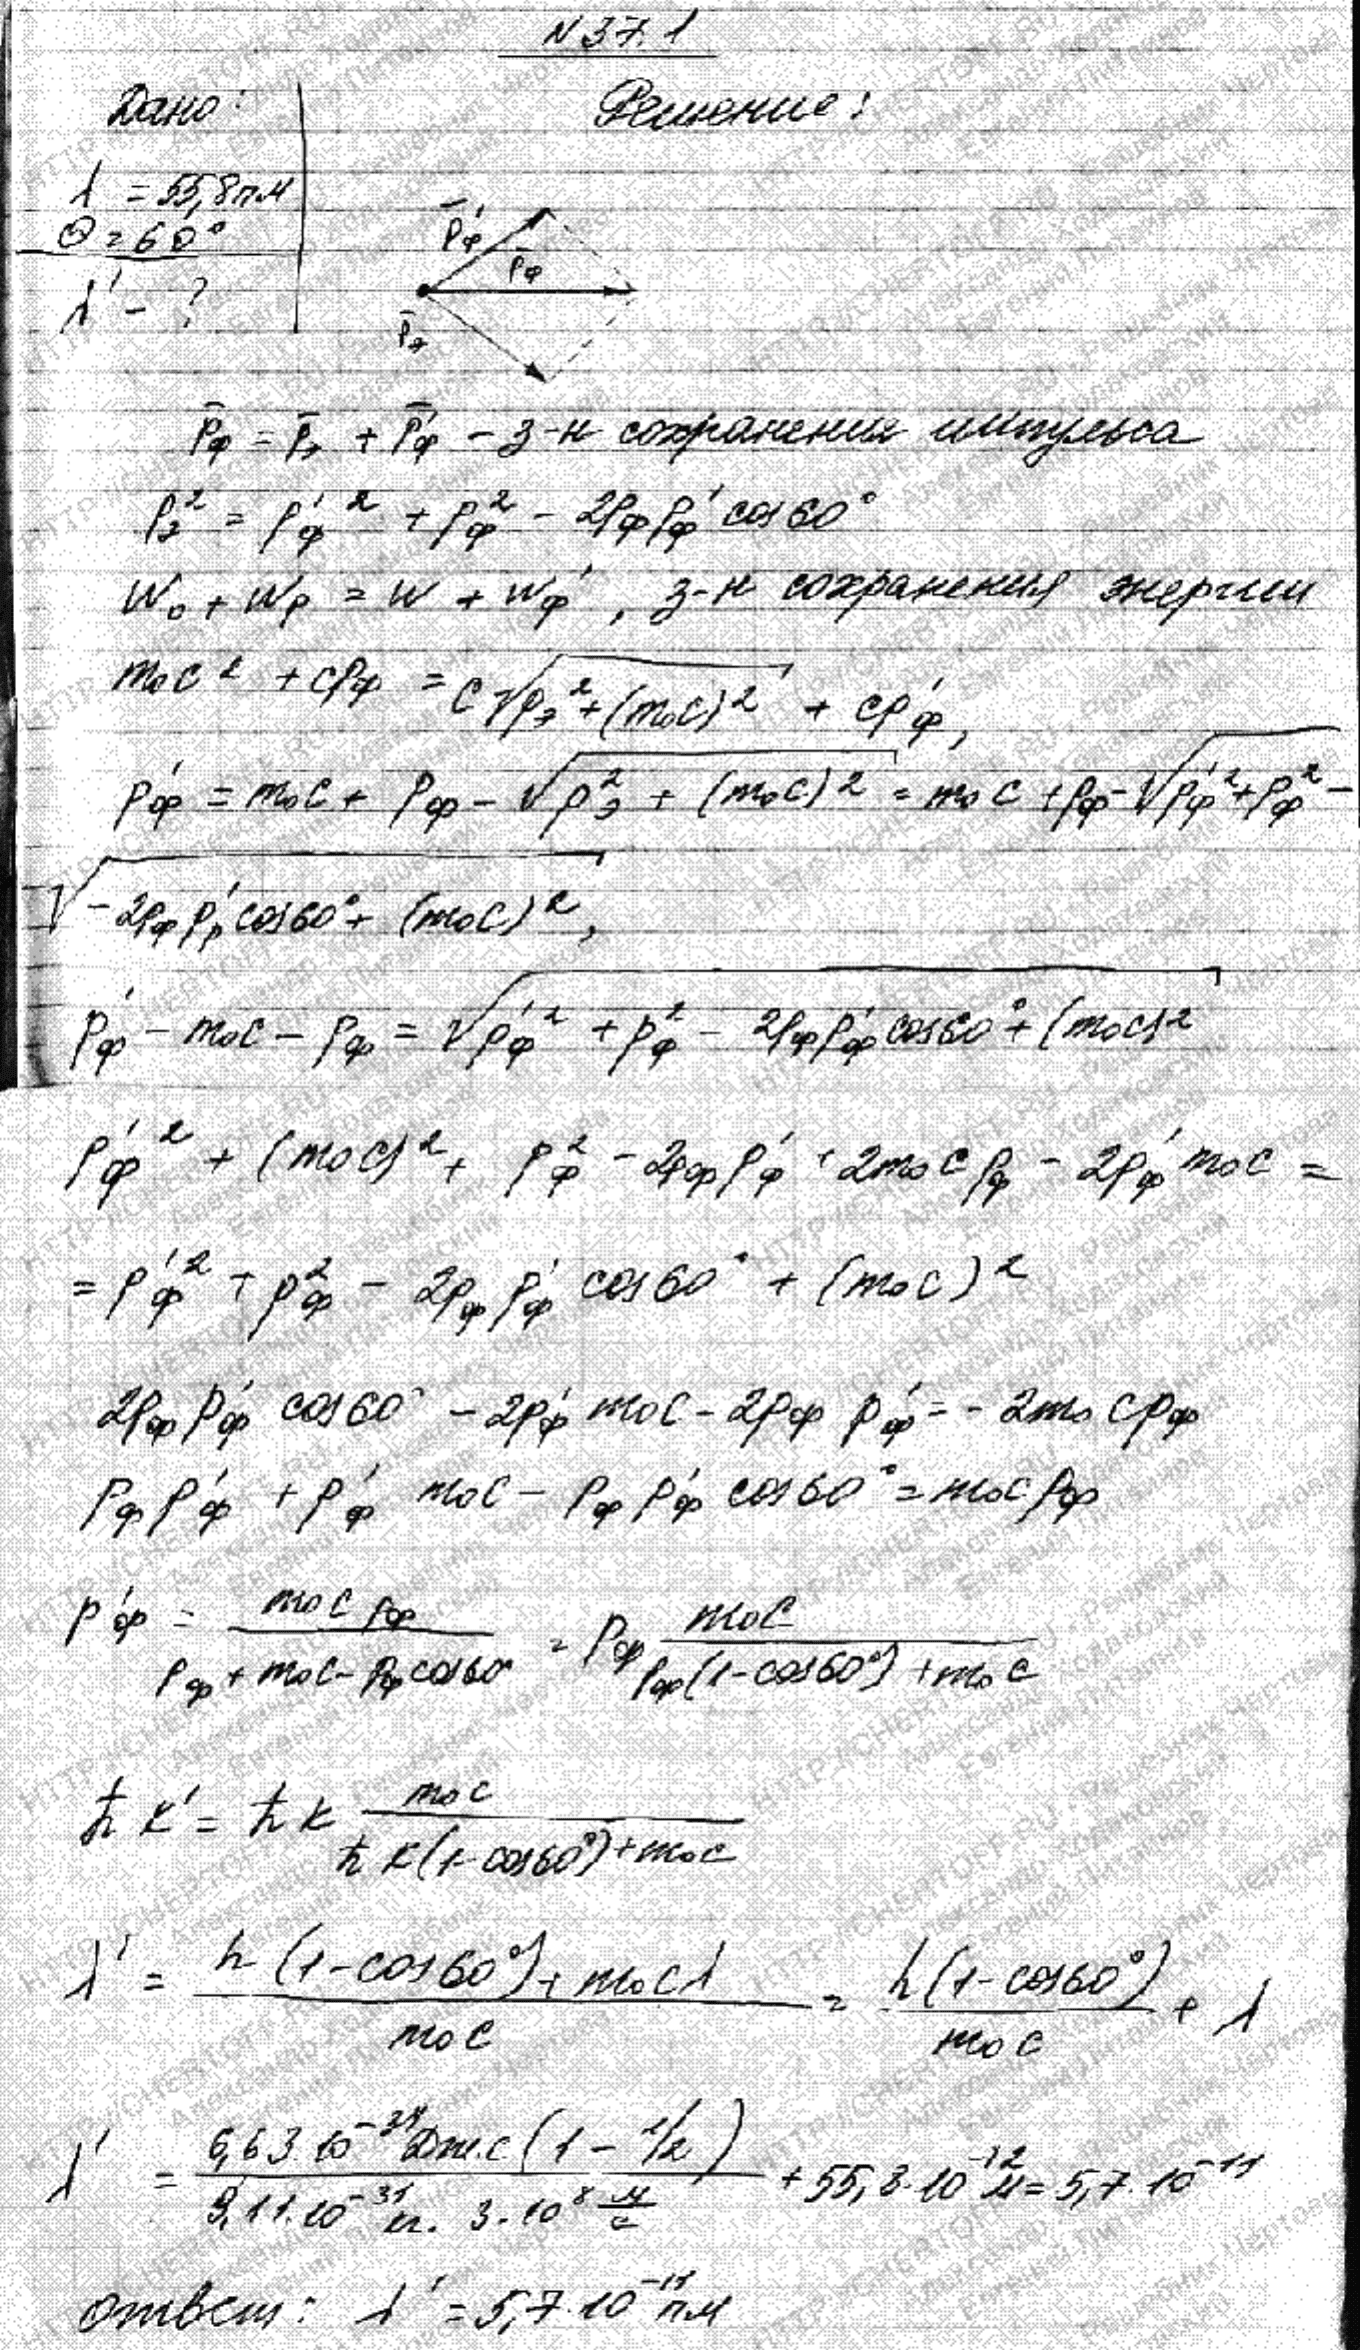 N 37.1
Дано:
Решение:
λ = 55,8 пм
Θ = 60°
λ' - ?
p̄'ф
p̄ф
p̄э
p̄ф = p̄э + p̄'ф - з-н сохранения импульса
pэ² = p'ф² + pф² - 2pф p'ф cos60°
W₀ + Wр = W + W'ф, з-н сохранения энергии
m₀c² + cpф = c√(pэ² + (m₀c)²) + cp'ф,
p'ф = m₀c + pф - √(pэ² + (m₀c)²) = m₀c + pф - √(p'ф² + pф² -
√(-2pф p'р cos60° + (m₀c)²,
p'ф - m₀c - pф = √(p'ф² + pф² - 2pф p'ф cos60° + (m₀c)²
p'ф² + (m₀c)² + pф² - 2pф p'ф + 2m₀c pф - 2p'ф m₀c =
= p'ф² + pф² - 2pф p'ф cos60° + (m₀c)²
2pф p'ф cos60° - 2p'ф m₀c - 2pф p'ф = - 2m₀cpф
pф p'ф + p'ф m₀c - pф p'ф cos60° = m₀c pф
p'ф = m₀c pф / (pф + m₀c - pф cos60°) = pф m₀c / (pф(1-cos60°) + m₀c)
ħk' = ħk m₀c / (ħk(1-cos60°) + m₀c)
λ' = (h(1-cos60°) + m₀cλ) / m₀c = h(1-cos60°) / m₀c + λ
λ' = 6,63·10⁻³⁴ Дж·с (1 - 1/2) / (9,11·10⁻³¹ кг · 3·10⁸ м/с) + 55,8·10⁻¹² м = 5,7·10⁻¹¹
ответ: λ' = 5,7·10⁻¹¹ пм